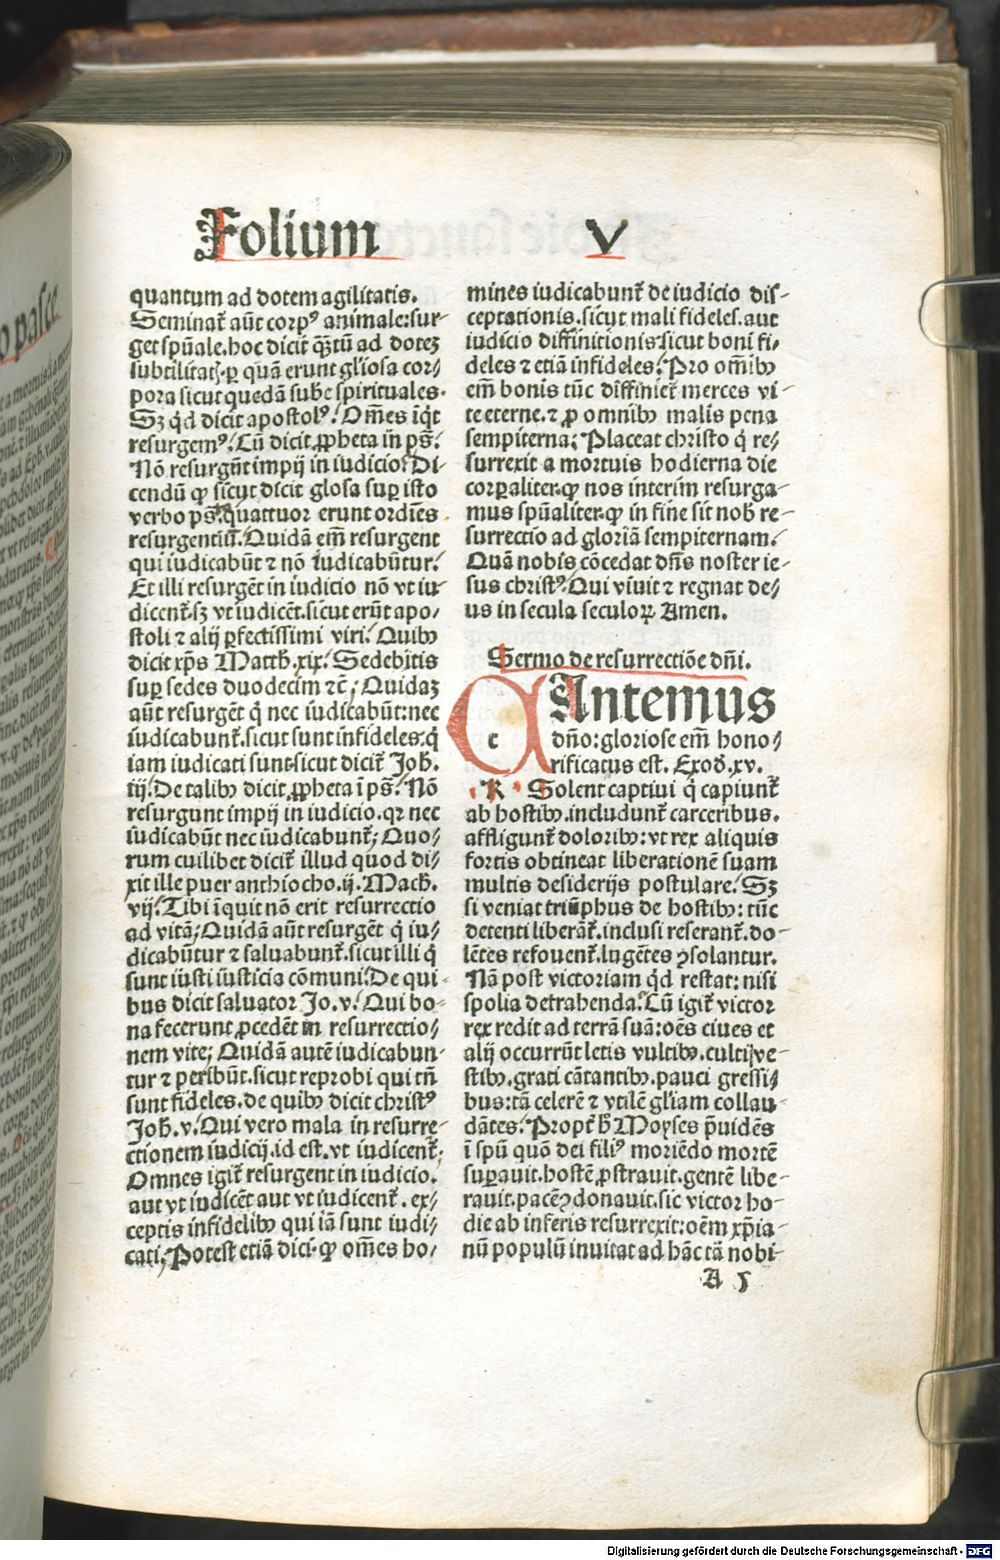 Folium V
quantum ad dotem agilitatis.
Seminat᷑ aūt corpꝰ animale:sur-
get spūale.hoc dicit q̄ꝫtū ad doteꝫ
subtilitatꝭ.ꝑ quā erunt gl’iosa cor/
pora sicut quedā sube spirituales.
Sꝫ qͥd dicit apostolꝰ/Om̄es īqͥt
resurgemꝰ/Cū dicit ꝓpheta in ps̄.
Nō resurgūt impij in iudicio/Di-
cendū ꝙ sicut dicit glosa suꝑ isto
verbo ps̄.quattuor erunt ordīes
resurgentiū.Quidā em̄ resurgent
qui iudicabūt ⁊ nō iudicabūtur/
Et illi resurgēt in iudicio nō vt iu-
dicent᷑.sꝫ vt iudicēt.sicut erūt apo-
stoli ⁊ alij ꝑfectissimi viri/Quibꝰ
dicit xp̄s Matth.xix/Sedebitis
suꝑ sedes duodecim ⁊c̄/Quidaꝫ
aūt resurgēt qͥ nec iudicabūt:nec
iudicabunt᷑.sicut sunt infideles.qͥ
iam iudicati sunt.sicut dicit᷑ Joh.
iij.De talibꝰ dicit ꝓpheta ī ps̄/Nō
resurgunt impij in iudicio.qꝛ nec
iudicabūt nec iudicabunt᷑;Quo/
rum cuilibet dicit᷑ illud quod di/
xit ille puer anthiocho.ij.Mach.
vij/Tibi īquit nō erit resurrectio
ad vitā;Quidā aūt resurgēt qͥ iu/
dicabūtur ⁊ saluabunt᷑.sicut illi qͥ
sunt iusti iusticia cōmuni.De qui-
bus dicit saluator Jo.v/Qui bo-
na fecerunt ꝓcedēt in resurrectio/
nem vite;Quidā autē iudicabun-
tur ⁊ peribūt.sicut reprobi qui tn̄
sunt fideles.de quibꝰ dicit christꝰ
Joh.v/Qui vero mala in resurre-
ctionem iudicij.id est.vt iudicent᷑;
Omnes igit᷑ resurgent in iudicio.
aut vt iudicēt aut vt iudicent᷑.ex/
ceptis infidelibꝰ qui iā sunt iudi/
cati;Potest etiā dici.ꝙ om̄es ho/
mines iudicabunt᷑ de iudicio dis-
ceptationis.sicut mali fideles.aut
iudicio diffinitionis sicut boni fi-
deles ⁊ etiā infideles/Pro om̄ibꝰ
em̄ bonis tūc diffiniet᷑ merces vi-
te eterne.⁊ ꝓ omnibꝰ malis pena
sempiterna;Placeat christo qͥ re/
surrexit a mortuis hodierna die
corꝑaliter.ꝙ nos interim resurga-
mus spūaliter.ꝙ in fine sit nob̄ re-
surrectio ad gloriā sempiternam.
Quā nobis cōcedat dn̄s noster ie-
sus christꝰ/Qui viuit ⁊ regnat de/
us in secula seculoꝝ Amen.
Sermo de resurrectiōe dn̄i.
c Antemus
dn̄o:gloriose em̄ hono/
rificatus est. Exod̄.xv.
R Solent captiui qͥ capiunt᷑
ab hostibꝰ.includunt᷑ carceribus.
affligunt᷑ doloribꝰ:vt rex aliquis
fortis obtineat liberationē suam
multis desiderijs postulare/Sꝫ
si veniat triūphus de hostibꝰ:tūc
detenti liberāt᷑.inclusi reserant᷑.do-
lētes refouent᷑.lugētes ꝯsolantur.
Nā post victoriam qͥd restat:nisi
spolia detrahenda/Cū igit᷑ victor
rex redit ad terrā suā:oēs ciues et
alij occurrūt letis vultibꝰ.cultꝭ ve-
stibꝰ.grati cātantibꝰ.pauci gressi/
bus:tā celerē ⁊ vtilē gl’iam collau-
dātes/Propt᷑ h̄ Moyses p̄uidēs
ī spū quō dei filiꝰ moriēdo mortē
suꝑauit.hostē ꝓstrauit.gentē libe-
rauit.pacēꝫ donauit.sic victor ho-
die ab inferis resurrexit:oēm xp̄ia-
nū populū inuitat ad hāc tā nobi-
A 5
Digitalisierung gefördert durch die Deutsche Forschungsgemeinschaft - DFG